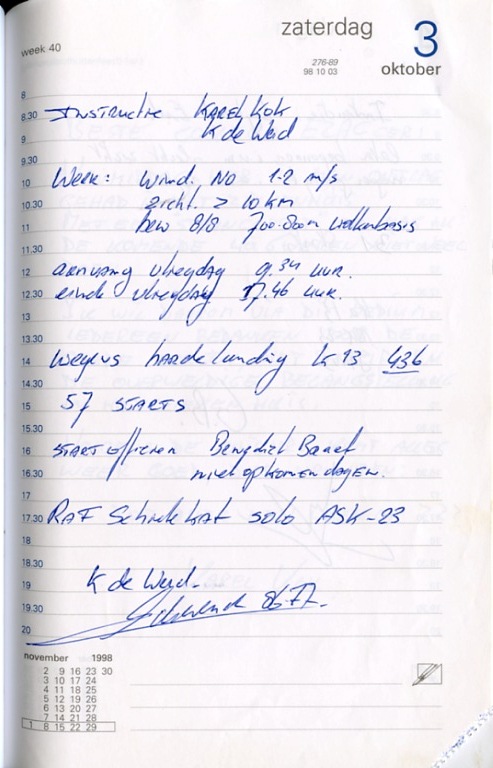 week 40
zaterdag 3
276-89
98 10 03
oktober
8
8.30 Instructie Karel Kok
9 K de Weid
9.30
10 Weer: Wind. NO 1-2 m/s
10.30 zicht. > 10 km
11 bew 8/8 700-800m wolkenbasis
11.30
12 aanvang vliegdag 9.34 uur.
12.30 einde vliegdag 17.46 uur.
13
13.30
14 wegens harde landing K13 436
14.30
15 57 STARTS
15.30
16 START officier Benedict
16.30 niet op komen dagen.
17
17.30 RAF solo ASK-23
18
18.30
19 K de Weid.
19.30
20
november 1998
2 9 16 23 30
3 10 17 24
4 11 18 25
5 12 19 26
6 13 20 27
7 14 21 28
1 8 15 22 29